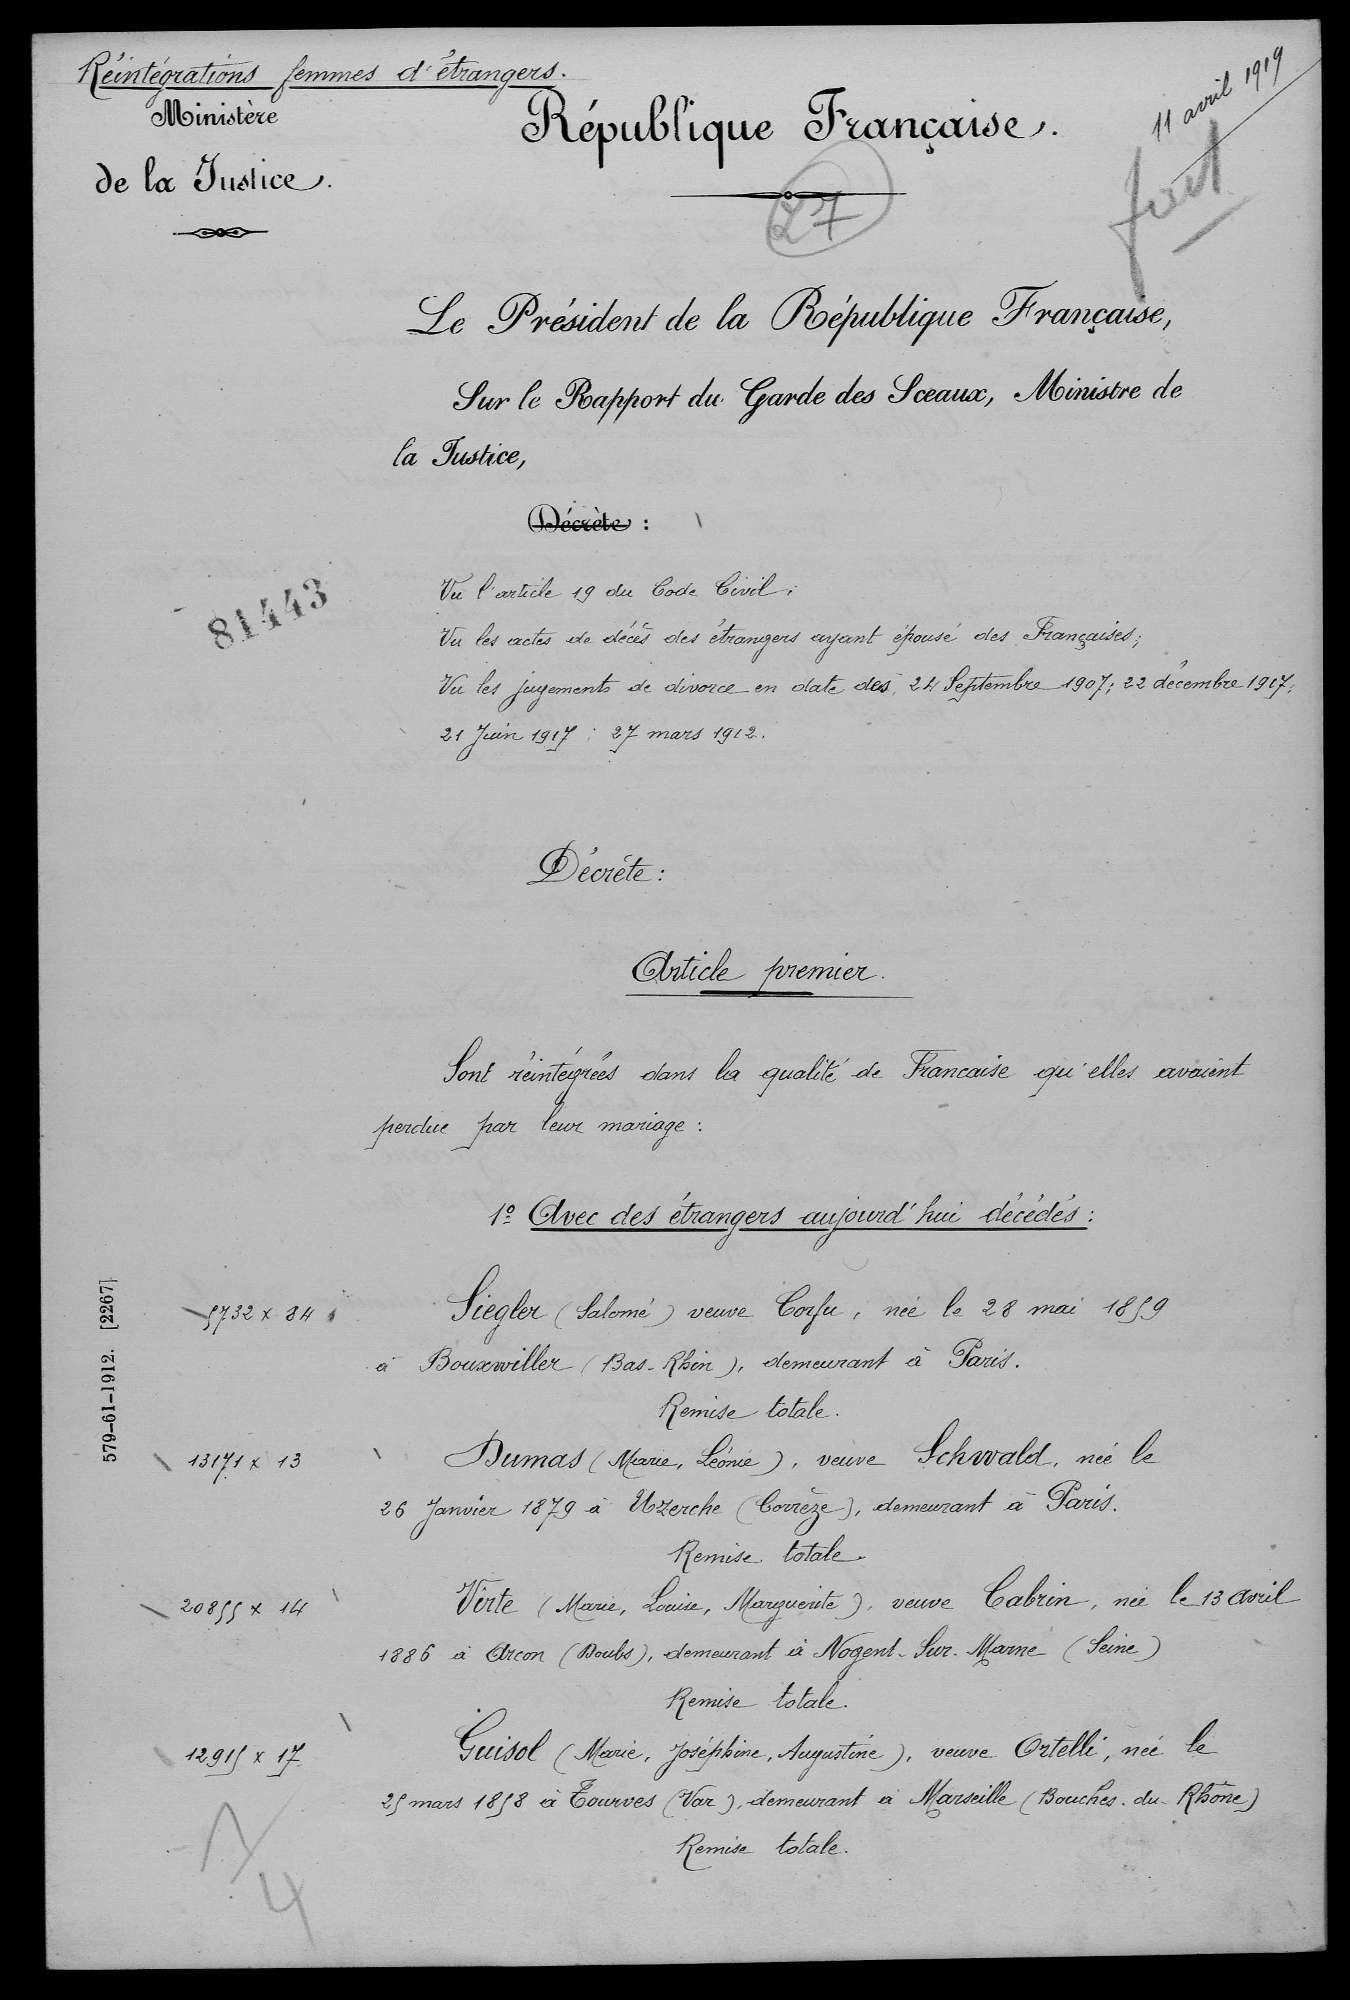 Réintégrations femmes d'étrangers.
Ministère
de la Justice.
République Française.
11 avril 1919
27
Le Président de la République Française,
Sur le Rapport du Garde des Sceaux, Ministre de
la Justice,
Décrète :
81443
Vu l'article 19 du Code Civil ;
Vu les actes de décès des étrangers ayant épousé des Françaises ;
Vu les jugements de divorce en date des 24 Septembre 1907 ; 22 décembre 1917 ;
21 Juin 1917 ; 27 mars 1912.
Décrète :
Article premier.
Sont réintégrées dans la qualité de Francaise qu'elles avaient
perdue par leur mariage :
1º Avec des étrangers aujourd'hui décédés :
5732 x 84
Siegler (Salomé) veuve Corfu, née le 28 mai 1859
à Bouxwiller (Bas-Rhin), demeurant à Paris.
Remise totale.
13171 x 13
Dumas (Marie, Léonie), veuve Schwald, née le
26 Janvier 1879 à Uzerche (Corrèze), demeurant à Paris.
Remise totale.
20855 x 14
Virte (Marie, Louise, Marguerite), veuve Cabrin, née le 13 avril
1886 à Arcon (Doubs), demeurant à Nogent-Sur-Marne (Seine)
Remise totale.
12915 x 17
Guisol (Marie, Joséphine, Augustine), veuve Ortelli, née le
25 mars 1858 à Tourves (Var), demeurant à Marseille (Bouches-du-Rhône)
Remise totale.
4
579-61-1912. [2267]